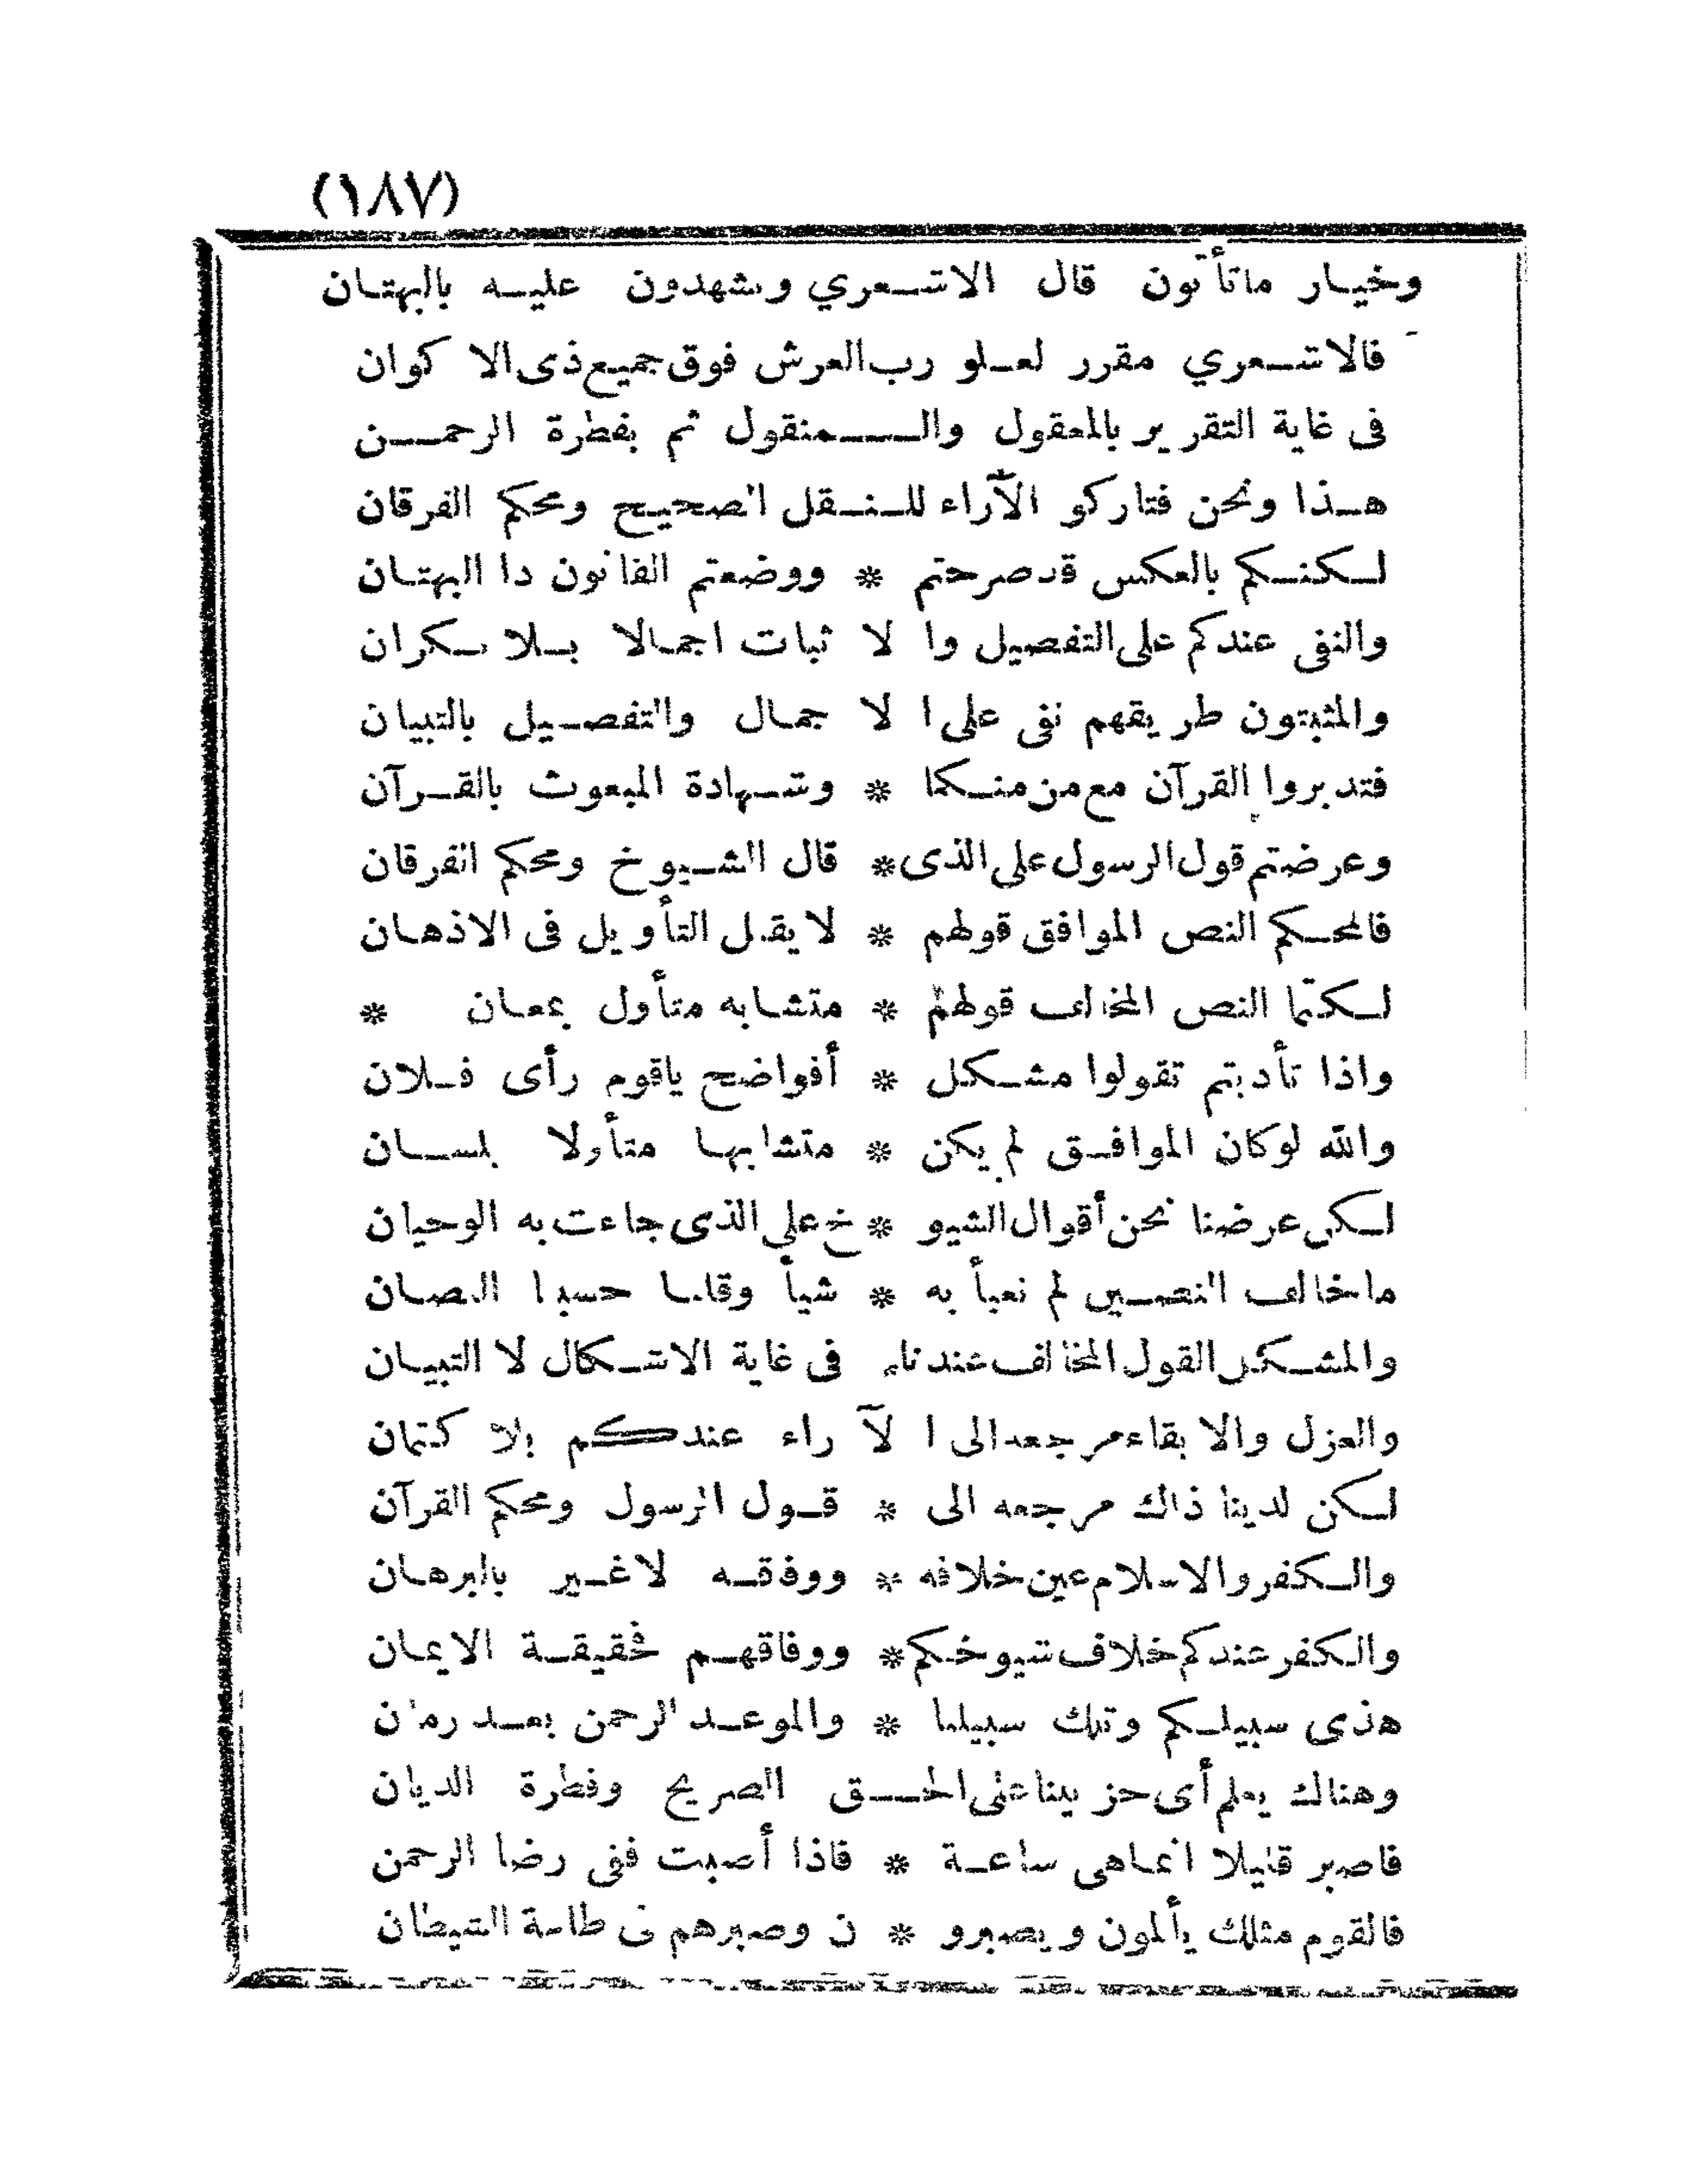 (١٨٧)
وخيار ماتأتون قال الاشعري وتشهدون عليه بالبهتان
فالاشعري مقرر لعلو رب العرش فوق جميع ذى الاكوان
فى غاية التقرير بالمعقول والمنقول ثم بفطرة الرحمن
هذا ونحن فتاركو الآراء للنقل الصحيح ومحكم الفرقان
لكنكم بالعكس قد صرحتم * ووضعتم القانون ذا البهتان
والنفى عندكم على التفصيل والاثبات اجمالا بلا نكران
والمثبتون طريقهم نفى على الاجمال والتفصيل بالتبيان
فتدبروا القرآن مع من منكما * وشهادة المبعوث بالقرآن
وعرضتم قول الرسول على الذى * قال الشيوخ ومحكم الفرقان
فالمحكم النص الموافق قولهم * لايقبل التأويل فى الاذهان
لكنما النص المخالف قولهم * متشابه متأول بمعان *
واذا تأدبتم تقولوا مشكل * أفواضح ياقوم رأى فلان
والله لوكان الموافق لم يكن * متشابها متأولا بلسان
لكن عرضنا نحن أقوال الشيو * خ على الذى جاءت به الوحيان
ماخالف النصين لم نعبأ به * شيأ وقلنا حسبنا النصان
والمشكل القول المخالف عندنا * فى غاية الاشكال لا التبيان
والعزل والابقاء مرجعه الى الآراء عندكم بلا كتمان
لكن لدينا ذاك مرجعه الى * قول الرسول ومحكم القرآن
والكفر والاسلام عين خلافه * ووفقه لاغير بالبرهان
والكفر عندكم خلاف شيوخكم * ووفاقهم فحقيقة الايمان
هذى سبيلكم وتلك سبيلنا * والموعد الرحمن بعد زمان
وهناك يعلم أى حزبينا على الحق الصريح وفطرة الديان
فاصبر قليلا انماهى ساعة * فاذا أصبت ففى رضا الرحمن
فالقوم مثلك يألمون ويصبرو * ن وصبرهم فى طاعة الشيطان